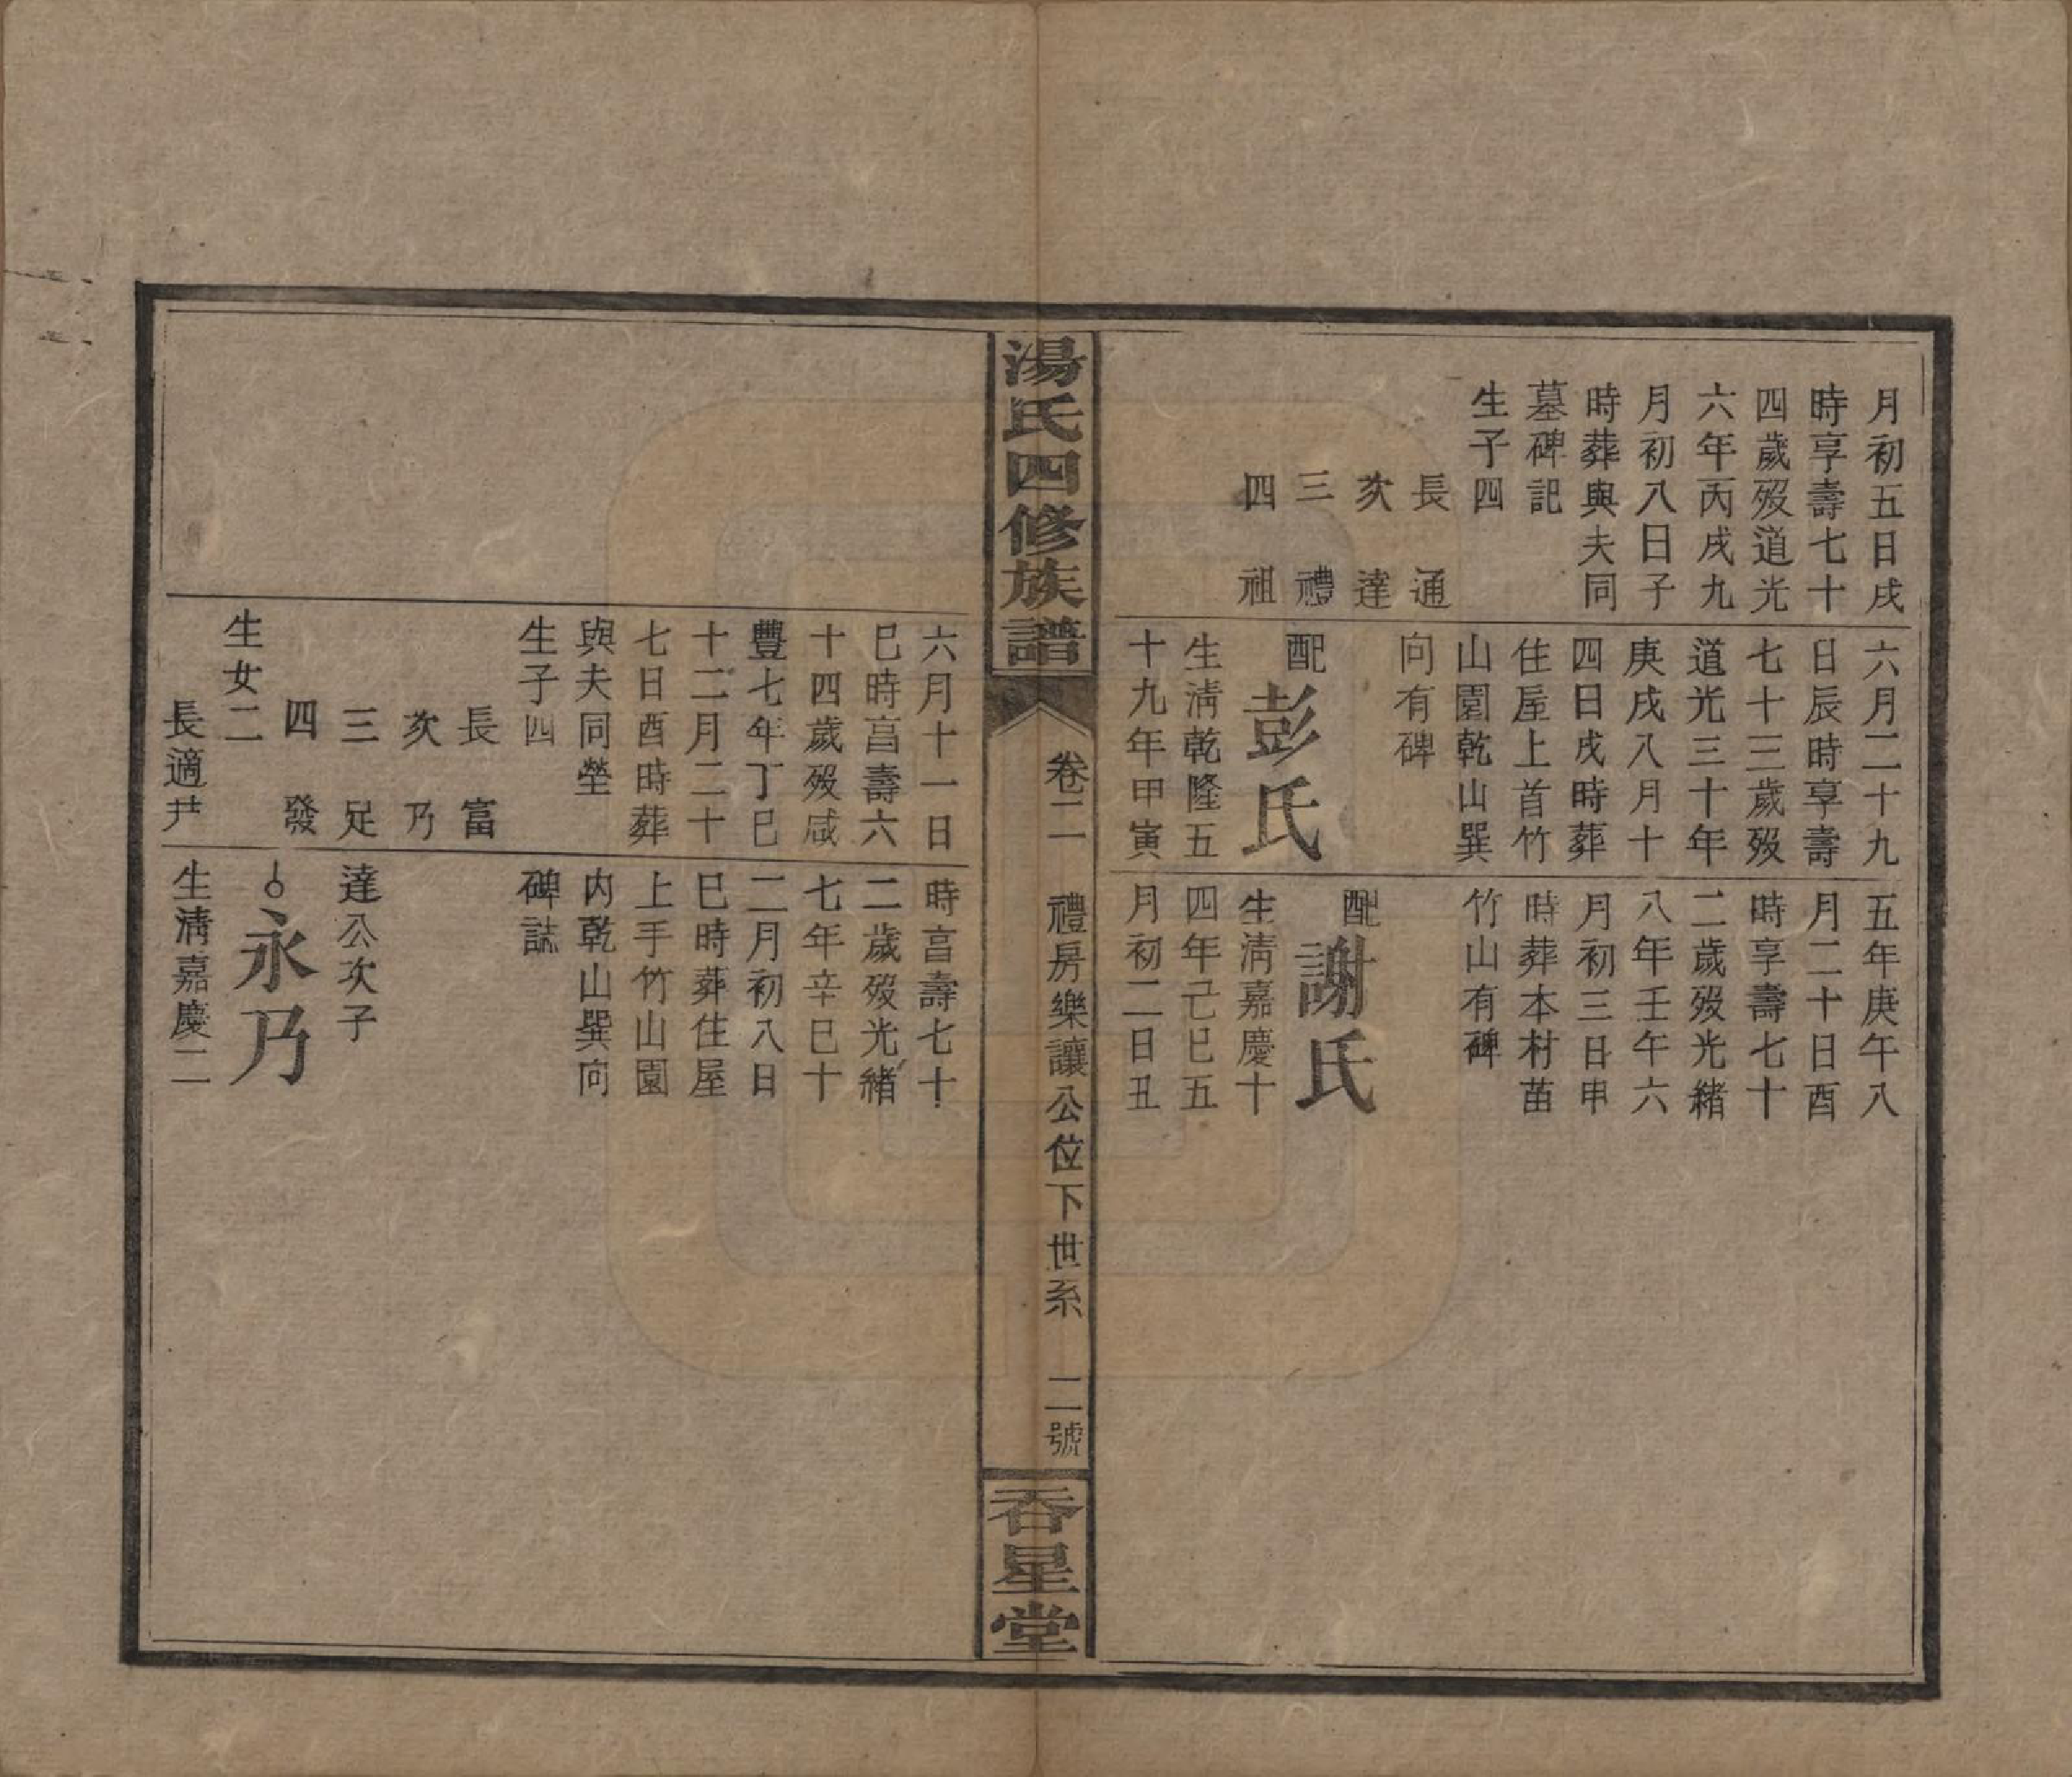 月初五日戌
時享壽七十
四歲歿道光
六年丙戌九
月初八日子
時葬與夫同
墓碑記
生子四
長　通
次　達
三　禮
四　祖
六月二十九
日辰時享壽
七十三歲歿
道光三十年
庚戌八月十
四日戌時葬
住屋上首竹
山園乾山巽
向有碑
配彭氏
生淸乾隆五
十九年甲寅
五年庚午八
月二十日酉
時享壽七十
二歲歿光緒
八年壬午六
月初三日申
時葬本村苗
竹山有碑
配謝氏
生淸嘉慶十
四年己巳五
月初二日丑
湯氏四修族譜
卷二　禮房樂讓公位下世系　二號
吞星堂
六月十一日
巳時亯壽六
十四歲歿咸
豐七年丁巳
十二月二十
七日酉時葬
與夫同塋
生子四
長　富
次　乃
三　足
四　發
生女二
長適尹
時亯壽七十
二歲歿光緒
七年辛巳十
二月初八日
巳時葬住屋
上手竹山園
内乾山巽向
碑誌
達公次子
永乃
生淸嘉慶二